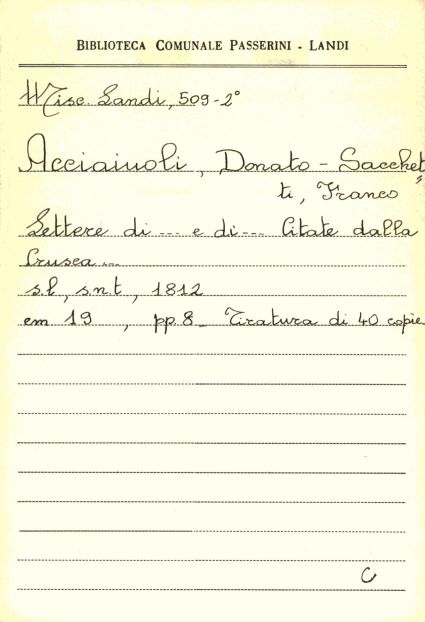 BIBLIOTECA COMUNALE PASSERINI - LANDI
Misc. Landi, 509-2°
Acciaiuoli, Donato - Sacchet
ti, Franco "
Lettere di --- e di --- Citate dalla
Crusca ...
s.l., s.n.t., 1812
cm 19 , pp. 8_ Tiratura di 40 copie
C